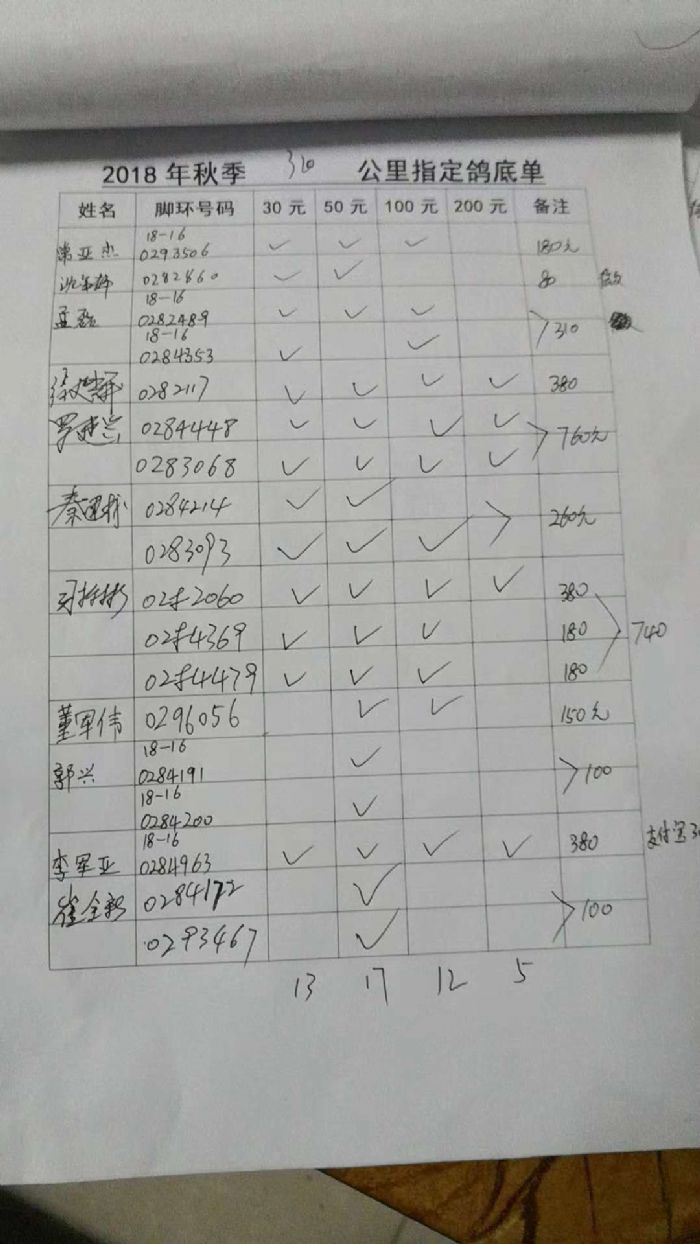 2018 年秋季 310 公里指定鸽底单
姓名 脚环号码 30 元 50 元 100 元 200 元 备注
18-16
亚杰 0293506 ✓ ✓ ✓ 180元
0282860 ✓ ✓ 80
18-16
孟磊 0282489 ✓ ✓ ✓ >310
18-16
0284353 ✓ ✓
0282117 ✓ ✓ ✓ ✓ 380
罗建兰 0284448 ✓ ✓ ✓ ✓ >760元
0283068 ✓ ✓ ✓ ✓
秦 0284214 ✓ ✓ >260元
0283093 ✓ ✓ ✓
0282060 ✓ ✓ ✓ ✓ 380
0284369 ✓ ✓ ✓ 180 >740
0284479 ✓ ✓ ✓ 180
董军伟 0296056 ✓ ✓ 150元
18-16
郭兴 0284191 ✓ >100
18-16
0284200 ✓
18-16
李军亚 0284963 ✓ ✓ ✓ ✓ 380 支付宝
崔全新 0284172 ✓ >100
0293467 ✓
13 17 12 5